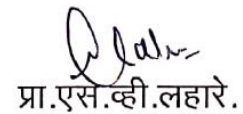 प्रा.एस.व्ही.लहारे.